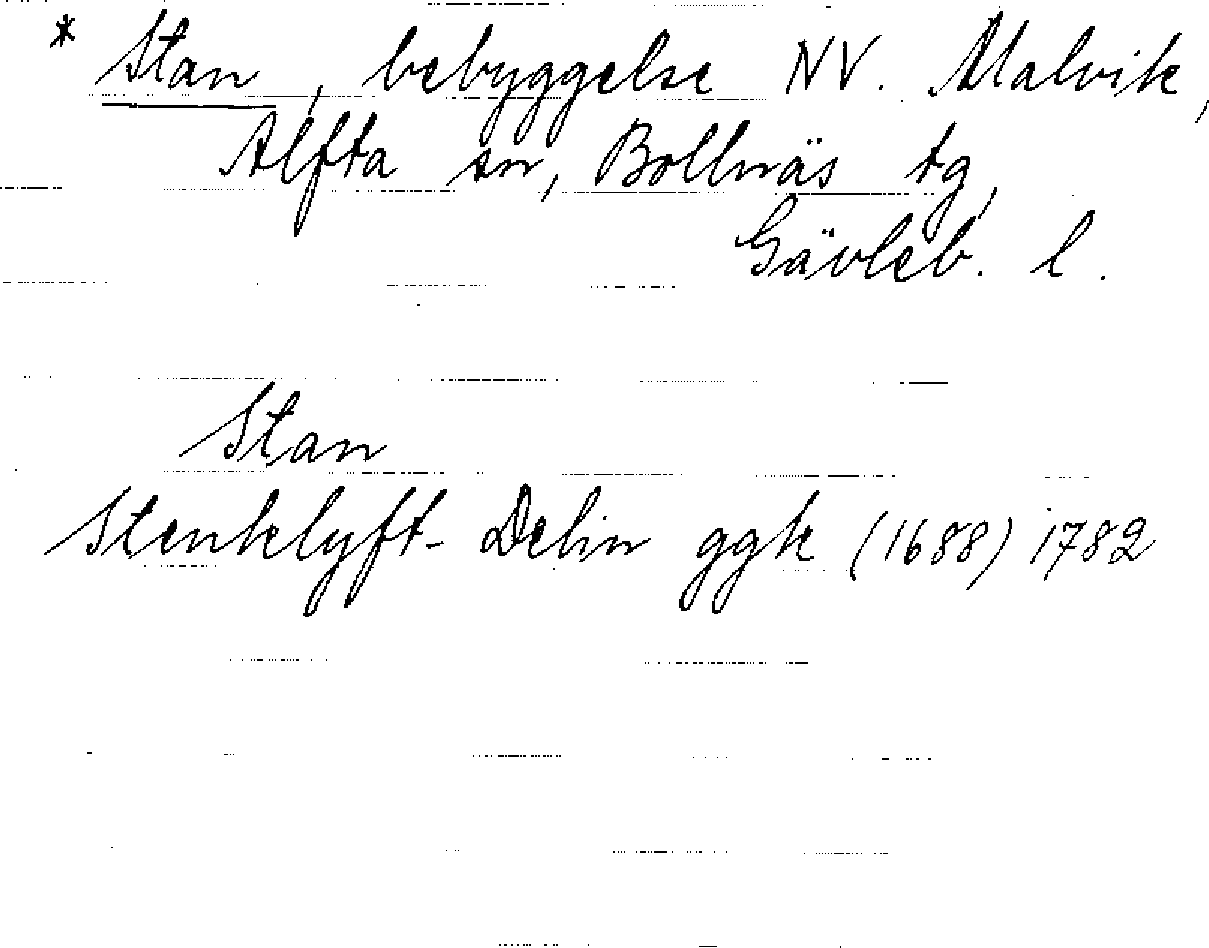 * Stan, bebyggelse NV. Malvik,
Alfta sn, Bollnäs tg,
Gävleb. l.
Stan
Stenklyft- Delin ggk (1688) 1782